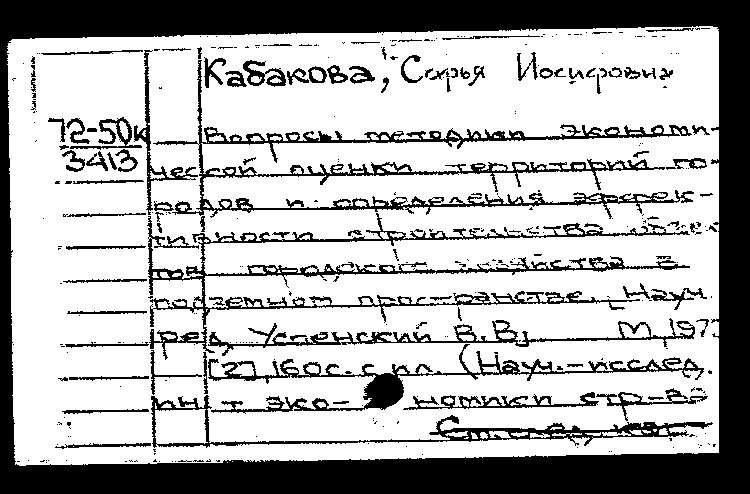 Кабакова, Сарья Иосифовна
72-50к
3413
Вопросы методики экономи-
ческой оценки территорий го-
родов и определения эффек-
тивности строительства объек-
тов городского хозяйства в
подземном пространстве. [Науч.
ред. Успенский В.В.] М., 197
[2], 160 с. с ил. (Науч.-исслед.
ин-т эко- номики стр-ва
См. след. карт.